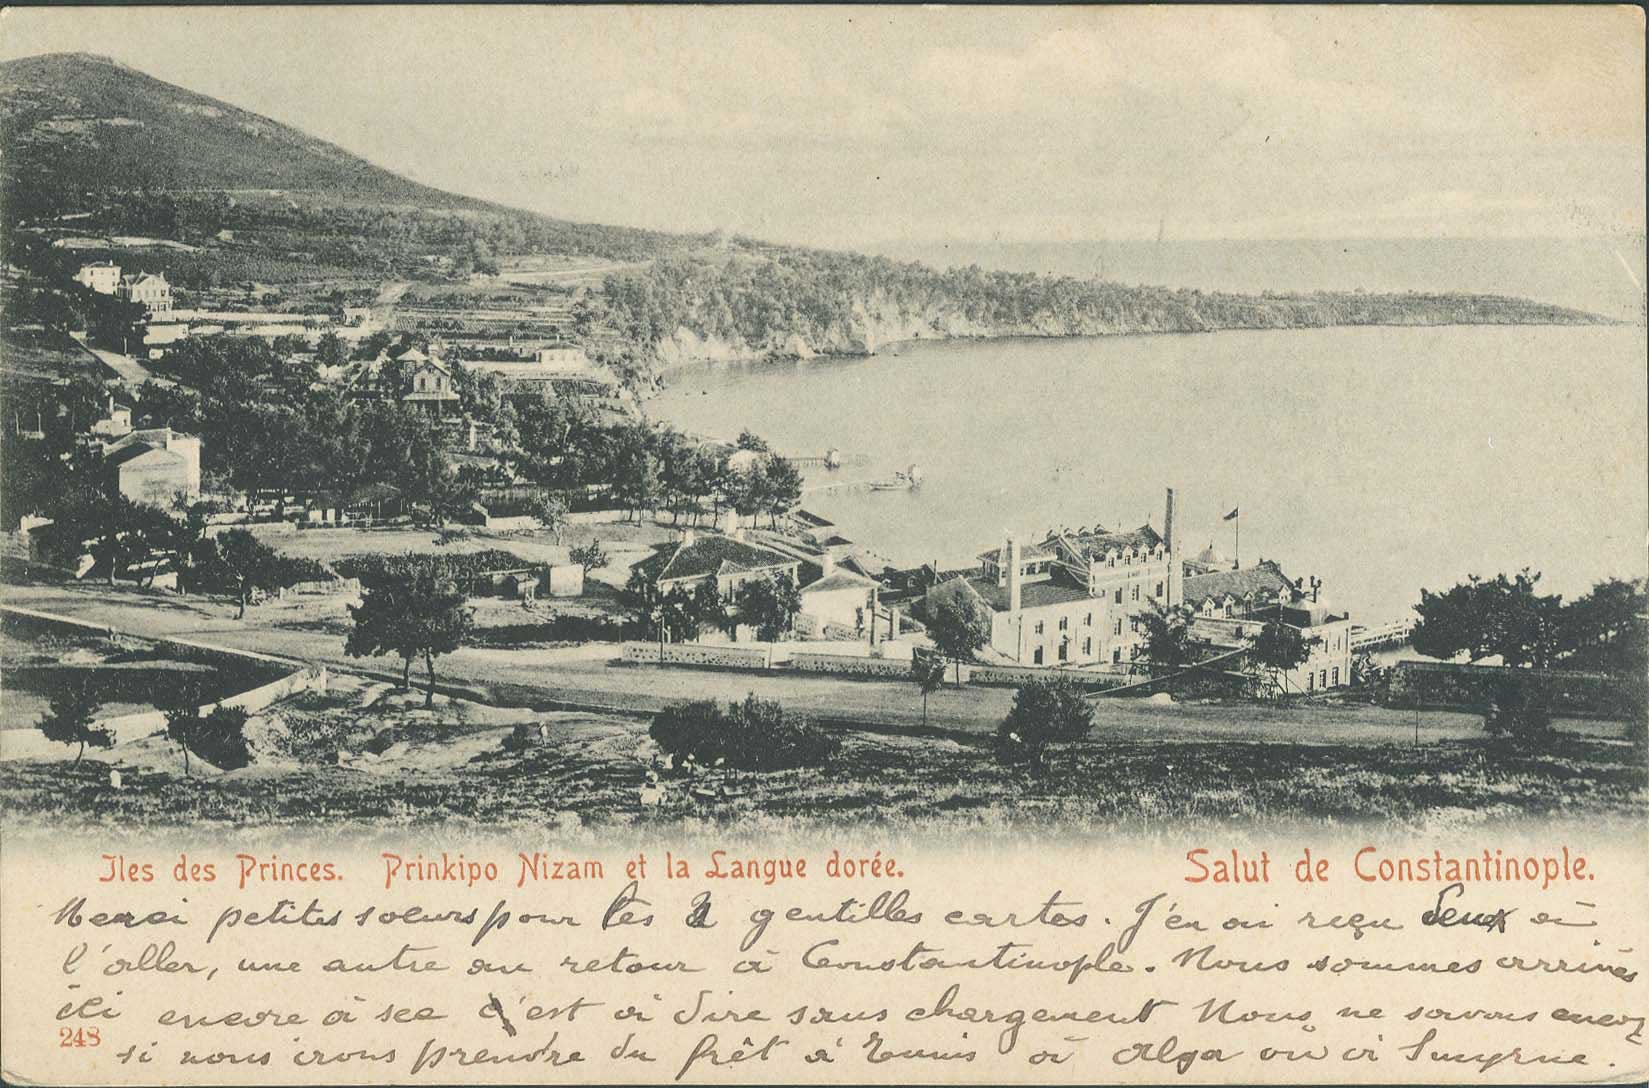 Iles des Princes. Prinkipo Nizam et la Langue dorée.
Salut de Constantinople.
Merci petites soeurs pour les gentilles cartes. J'en ai reçu deux à
l'aller, une autre au retour à Constantinople. Nous sommes arrivés
ici encore à sec c'est à dire sans chargement Nous ne savons encor
248
si nous irons prendre du frêt à Tunis où à Smyrne.